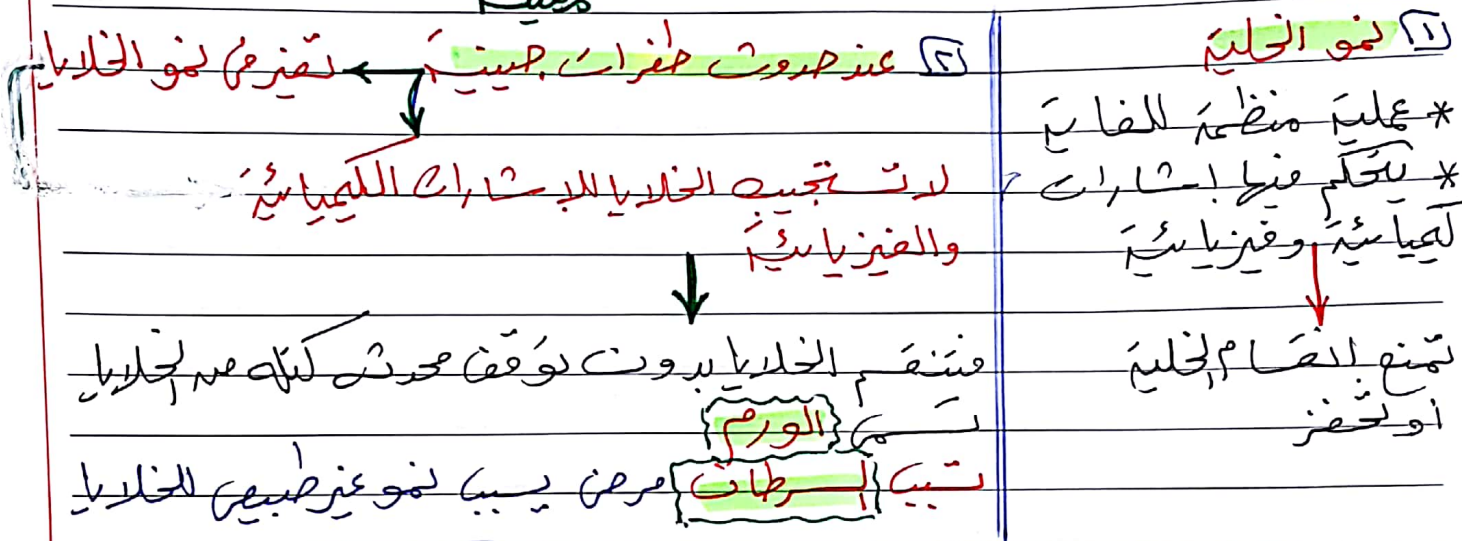 ١ نمو الخلية
* عملية منظمة للغاية
* يتحكم فيها إشارات
كيميائية وفيزيائية
تمنع انقسام الخلية
أو تحفز
٢ عند حدوث طفرات جينية ← تغير في نمو الخلايا
لا تستجيب الخلايا للإشارات الكيميائية
والفيزيائية
فتنقسم الخلايا بدون توقف محدثه كتله من الخلايا
تسمى الورم
تسبب السرطان مرض يسبب نمو غير طبيعي للخلايا